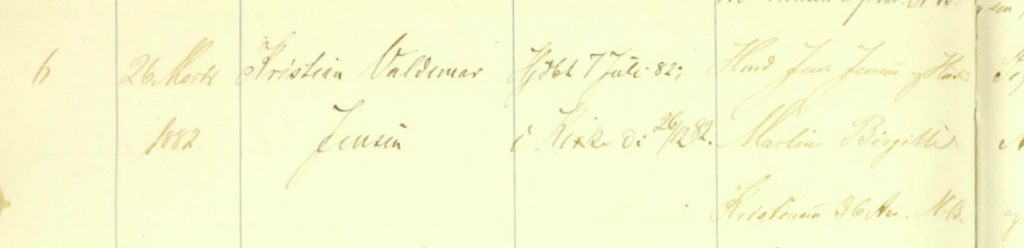 6
26 Marts
1882
Kristian Valdemar
Jensen
Hjdbt 7 Juli 82;
i Kirke d: 26/12 82.
Hmd Jens Jensen og Hustru
Martine Birgitte
Kristensen 36 Aar. N. B.
og